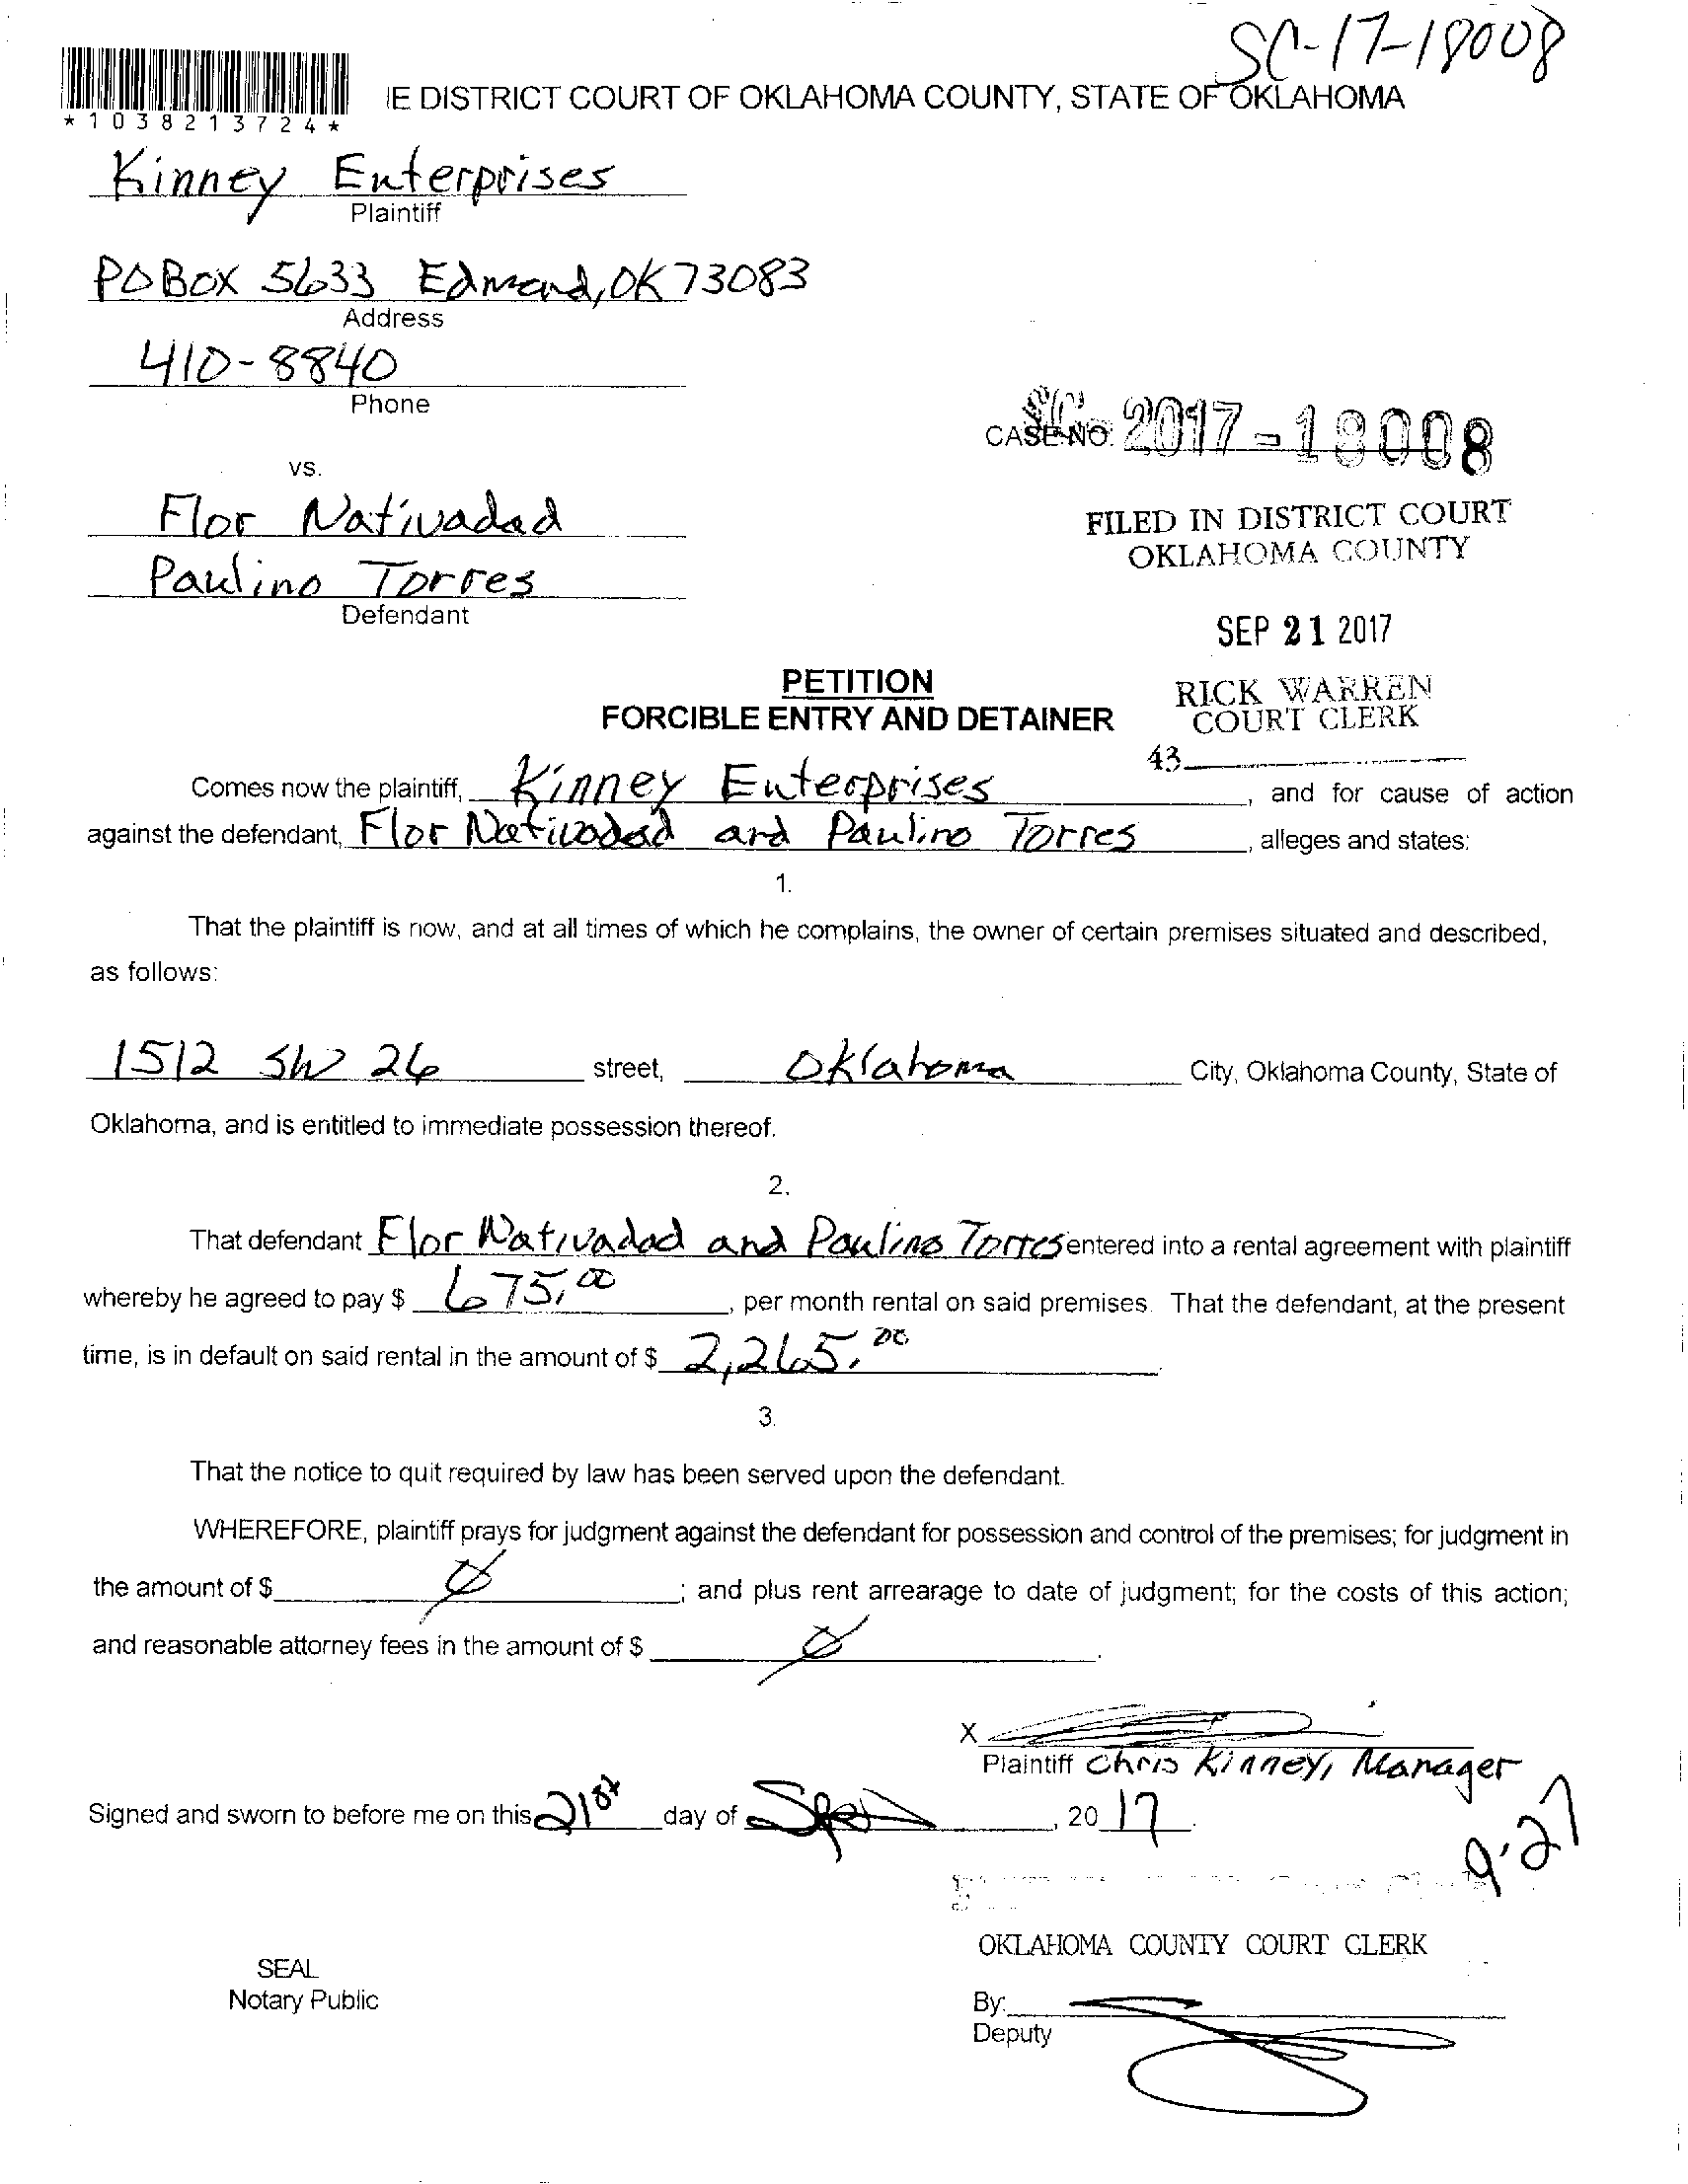 SC-17-18008
IE DISTRICT COURT OF OKLAHOMA COUNTY, STATE OF OKLAHOMA
*1038213724*
Kinney Enterprises
Plaintiff
PO BOX 5633 Edmond, OK 73083
Address
410-8840
Phone
CASE NO. SC-2017-18008
vs.
Flor Nativadad
Paulino Torres
Defendant
FILED IN DISTRICT COURT
OKLAHOMA COUNTY
SEP 21 2017
RICK WARREN
COURT CLERK
43
PETITION
FORCIBLE ENTRY AND DETAINER
Comes now the plaintiff, Kinney Enterprises, and for cause of action
against the defendant, Flor Nativadad and Paulino Torres, alleges and states:
1.
That the plaintiff is now, and at all times of which he complains, the owner of certain premises situated and described,
as follows:
1512 SW 26 street, Oklahoma City, Oklahoma County, State of
Oklahoma, and is entitled to immediate possession thereof.
2.
That defendant Flor Nativadad and Paulino Torres entered into a rental agreement with plaintiff
whereby he agreed to pay $ 675.00, per month rental on said premises. That the defendant, at the present
time, is in default on said rental in the amount of $ 2,265.00.
3.
That the notice to quit required by law has been served upon the defendant.
WHEREFORE, plaintiff prays for judgment against the defendant for possession and control of the premises; for judgment in
the amount of $ Ø; and plus rent arrearage to date of judgment; for the costs of this action;
and reasonable attorney fees in the amount of $ Ø.
X
Plaintiff Chris Kinney, Manager
Signed and sworn to before me on this 21st day of Sept, 2017.
9-27
OKLAHOMA COUNTY COURT CLERK
SEAL
Notary Public
By:
Deputy